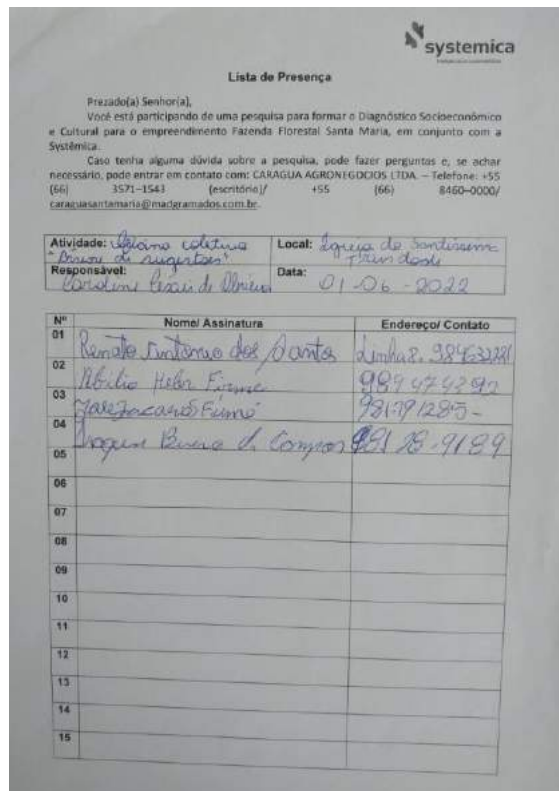 systemica
Lista de Presença
Prezado(a) Senhor(a),
Você está participando de uma pesquisa para formar o Diagnóstico Socioeconômico
e Cultural para o empreendimento Fazenda Florestal Santa Maria, em conjunto com a
Systêmica.
Caso tenha alguma dúvida sobre a pesquisa, pode fazer perguntas e, se achar
necessário, pode entrar em contato com: CARAGUA AGRONEGOCIOS LTDA. – Telefone: +55
(66) 3571–1543 (escritório)/ +55 (66) 8460–0000/
caraguasantamaria@madgramados.com.br.
Atividade: Oficina coletiva
"Árvore de sugestões"
Local: Igreja do Santíssima
Trindade
Responsável:
Caroline Cesari de Oliveira
Data:
01-06-2022
Nº Nome/ Assinatura Endereço/ Contato
01 Renato Antonio dos Santos Linha 8.
02 Abilio Firme
03 Firme
04 de Campos 98128-9189
05
06
07
08
09
10
11
12
13
14
15